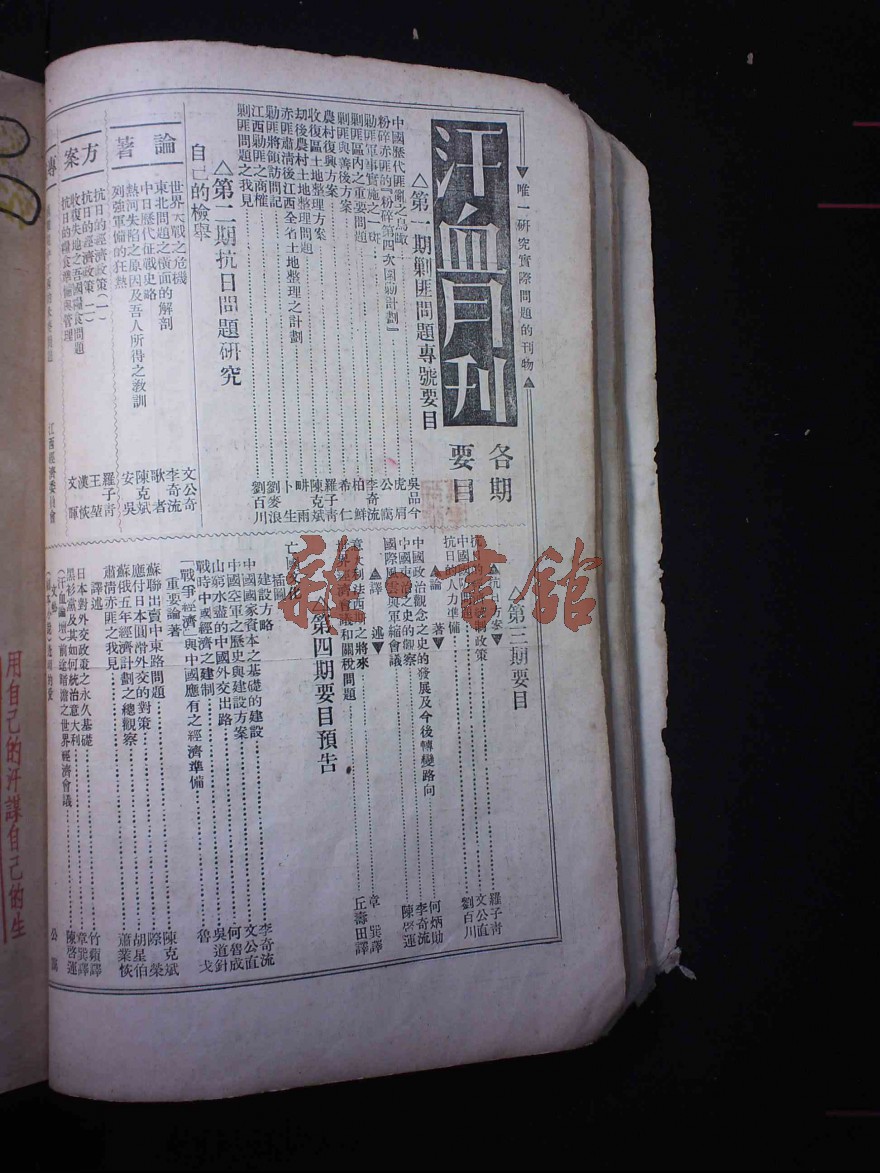 ▼唯一研究實際問題的刊物▲
汗血月刊
各期
要目
△第一期剿匪問題專號要目
中國歷代匪亂之鳥瞰 吳品今
粉碎赤匪的『粉碎第四次圍勦計劃』 虎肩
勦匪軍事實施之一斑 公
剿匪區內之重要問題 李奇流
剿匪與善後方案 柏鮮
農村復興方案 希仁
收復區土地整理方案 羅子青
刧後農村土地整理問題 陳克斌
赤匪肅清後江西全省土地整理之計劃 畊雨
勦匪將領訪問記 卜生
江西勦匪之商榷 劉麥浪
剿匪問題之我見 劉百川
△第二期抗日問題硏究
自己的檢舉
論著
世界大戰之危機 文公奇
東北問題之橫面的解剖 李奇流
中日歷代征戰史略 歌者
熱河失陷之原因及吾人所得之敎訓 陳克斌
列強軍備的狂熱 安吳
方案
抗日的經濟政策(一) 羅子青
抗日的經濟政策(二) 王堃
收復失地之吾國糧食問題 漢恢
抗日的糧食準備與管理 文暉
專
江西經濟委員會
△第三期要目
▲抗日方案▼
政策 羅子青
中國 問題 文公直
抗日的人力準備 劉百川
▲論著▼
中國政治觀念之史的發展及今後轉變路向 何炳勛
中國 治之史的觀察 李奇流
國際風雲與軍縮會議 陳啓運
▲譯述▼
意大利法西斯之將來 章巽譯
世界經濟會議和關稅問題 丘壽田譯
△第四期要目預告
亡國文化
插圖
建設方略
中國國家資本之基礎的建設 李奇流
中國空軍之歷史與建設方案 文公直
山窮水盡的中國外交出路 何魯成
戰時中國經濟之建制 吳道針
「戰爭經濟」與中國應有之經濟準備 魯戈
重要論著
蘇聯出賣中東路問題 陳克斌
應付日本圓滑外交的對策 際榮
蘇俄五年經濟計劃之總觀察 胡星伯
肅清赤匪之我見 蕭業恢
譯述
日本對外交政策之永久基礎 竹蘋譯
黑衫黨及其如何統治意大利 章巽譯
(汗血論壇)前途暗澹之世界經濟會議 陳啓運
文藝
公
用自己的汗謀自己的生
雜·書館